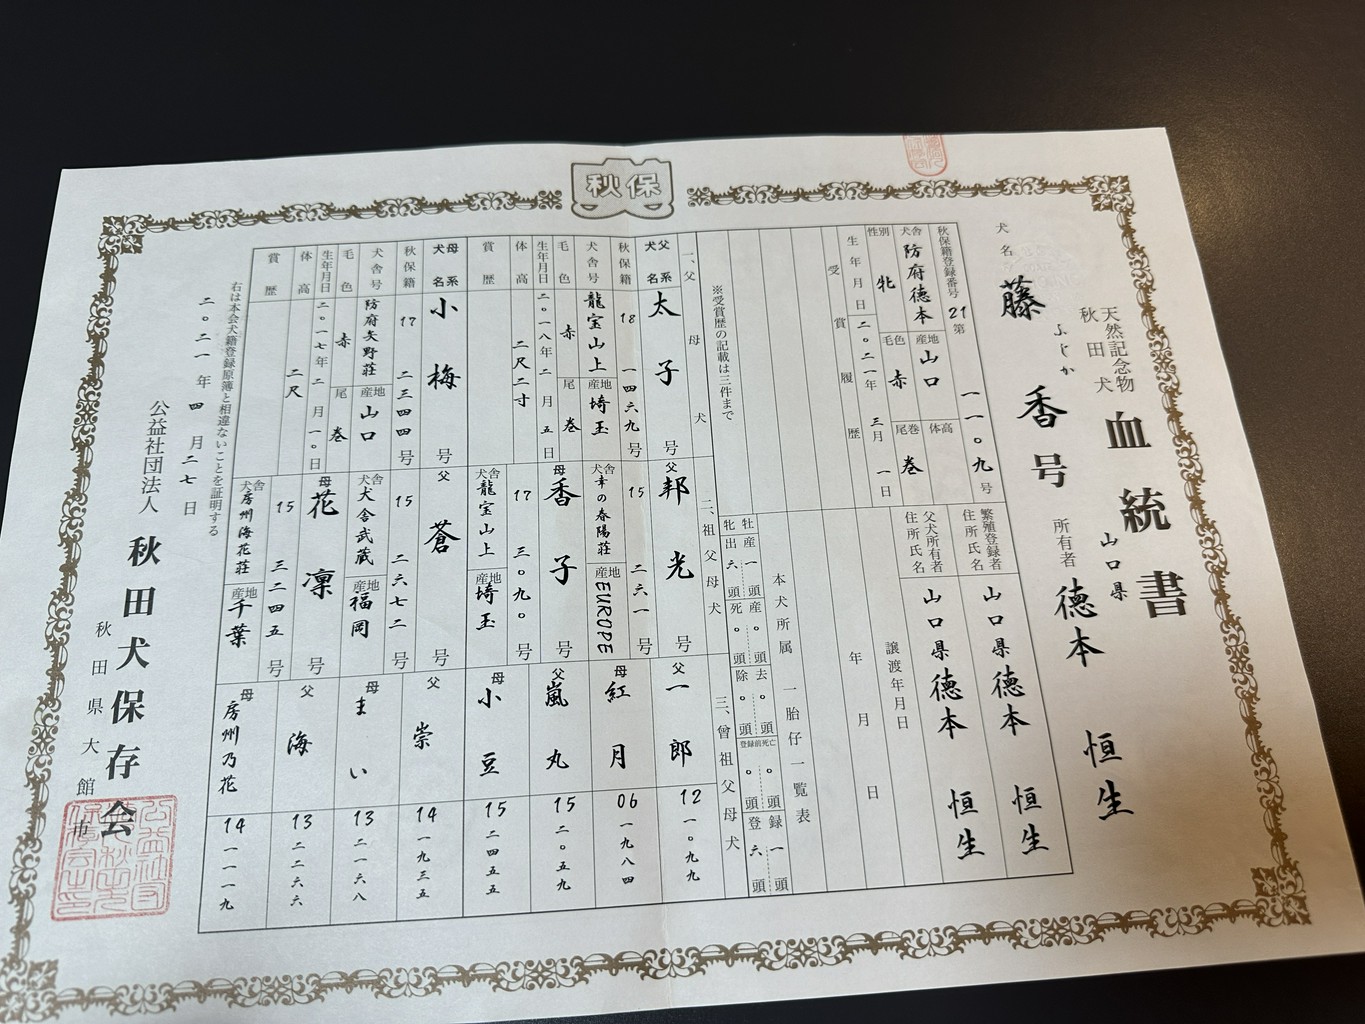 秋保
天然記念物
秋田犬
血統書
犬名
藤香号
ふじか
所有者
山口県
徳本 恒生
秋保籍登録番号
21第一一〇九号
犬舎
防府徳本
産地
山口
体高
性別
牝
毛色
赤
尾
巻
生年月日
二〇二一年三月一日
受賞履歴
※受賞歴の記載は三件まで
繁殖登録者
住所氏名
山口県徳本 恒生
父犬所有者
住所氏名
山口県徳本 恒生
譲渡年月日
年月日
本犬所属一胎仔一覧表
牡産一頭 死〇頭 除去〇頭 登録一頭
牝出六頭 産〇頭 〇頭 登前死亡〇頭 六頭
一、父母犬
二、祖父母犬
三、曾祖父母犬
父系
犬名
太子号
秋保籍
18一四六九号
犬舎号
龍宝山上
産地
埼玉
毛色
赤
尾
巻
生年月日
二〇一八年二月五日
体高
二尺二寸
賞歴
母系
犬名
小梅号
秋保籍
17二三四四号
犬舎号
防府矢野荘
産地
山口
毛色
赤
尾
巻
生年月日
二〇一七年二月一〇日
体高
二尺
賞歴
父
邦光号
15二六一号
犬舎
幸の春陽荘
産地
EUROPE
母
香子号
17三〇九〇号
犬舎
龍宝山上
産地
埼玉
父
蒼号
15二六七二号
犬舎
犬舎武蔵
産地
福岡
母
花凛号
15三二四五号
犬舎
房州海花荘
産地
千葉
父
一郎
12一〇九九
母
紅月
06一九八四
父
嵐丸
15二〇五九
母
小豆
15二四五五
父
崇
14一九三五
母
まい
13二一六八
父
海
13二二六六
母
房州乃花
14一一一九
右は本会犬籍登録原簿と相違ないことを証明する
二〇二一年四月二七日
公益社団法人
秋田犬保存会
秋田県大館市